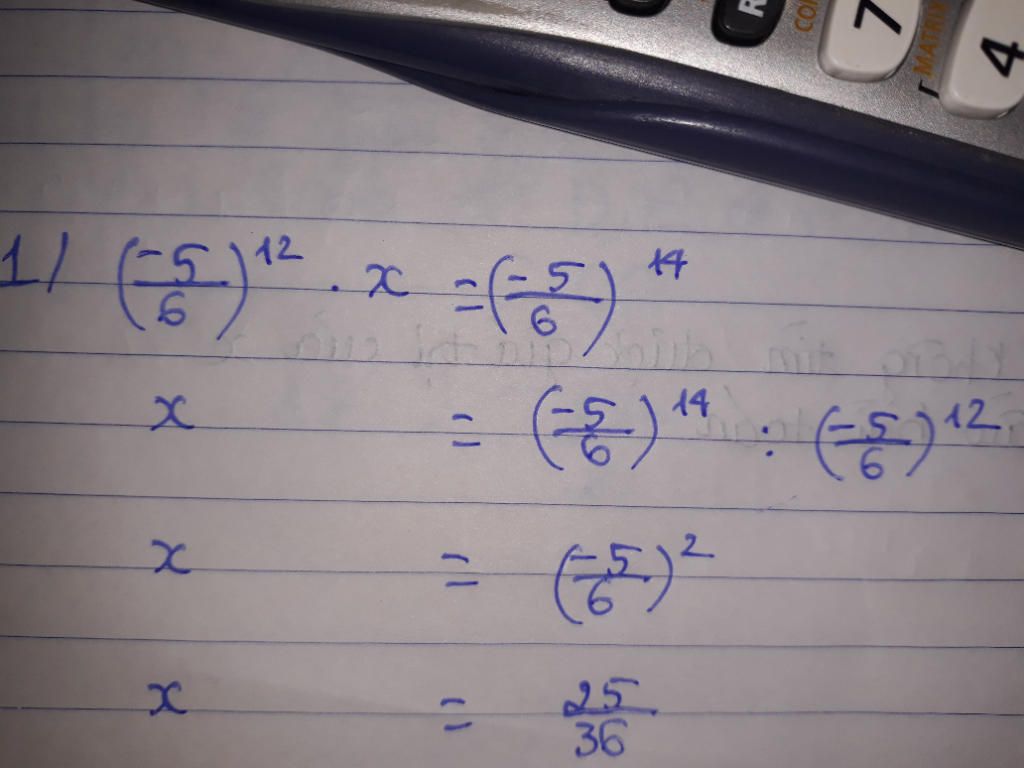 R CO 7 [MATRIX 4
1/ (-5/6)^12 . x = (-5/6)^14
x = (-5/6)^14 : (-5/6)^12
x = (-5/6)^2
x = 25/36